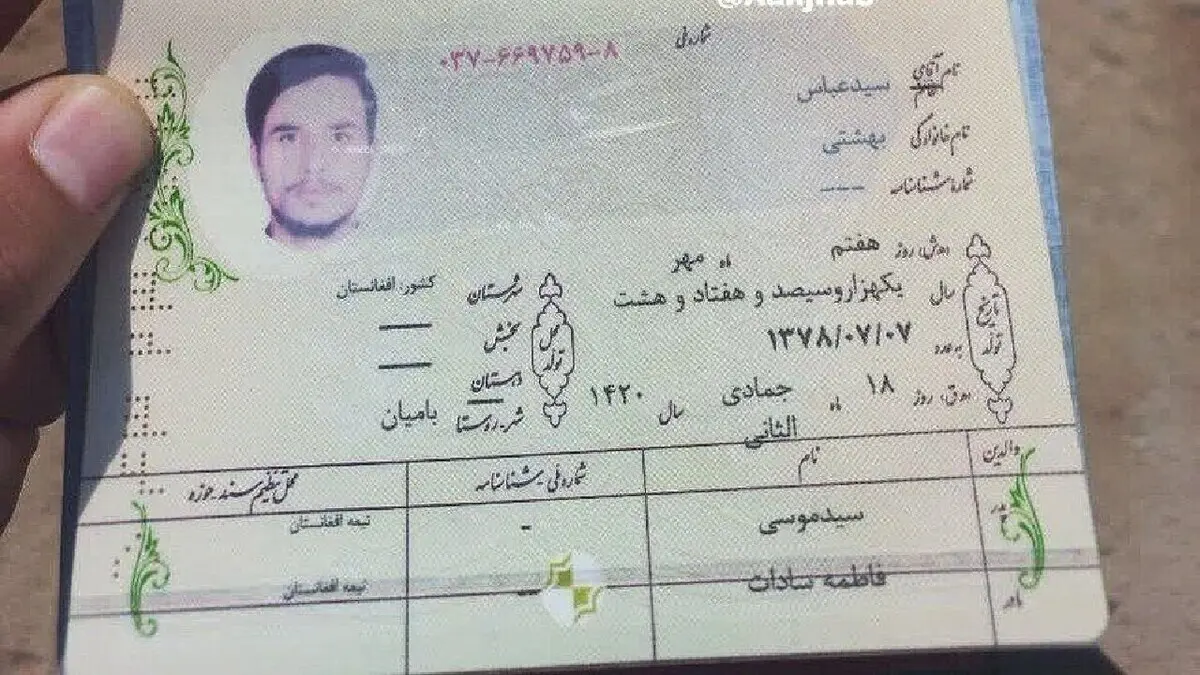 شماره ملی ۰۳۷-۶۶۹۷۵۹-۸
نام آقای خانم سیدعباس
نام خانوادگی بهشتی
شماره شناسنامه ---
تاریخ تولد
روز هفتم ماه مهر
سال یکهزاروسیصد و هفتاد و هشت
به عدد ۱۳۷۸/۰۷/۰۷
روز ۱۸ ماه جمادی الثانی سال ۱۴۲۰
محل تولد
شهرستان کشور: افغانستان
بخش —
دهستان —
شهر-روستا بامیان
والدین نام شماره ملی-شناسنامه محل تنظیم سند-حوزه
پدر سیدموسی - تبعه افغانستان
مادر فاطمه سادات - تبعه افغانستان